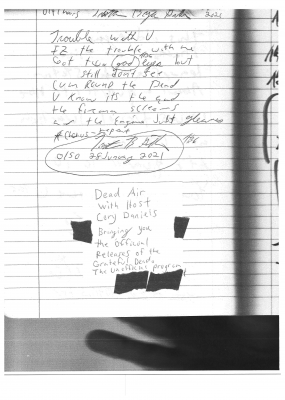 2021
Trouble with U
EZ the trouble with me
Got two good eyes but
still don't see
Cum Round the Bend
U Know its the end
the fireman screams
and the Engine Just gleams
0150 28 January 2021
Dead Air
With Host
Cory Daniels
Bringing you
the Official
Releases of the
Grateful Dead.
The unofficial program